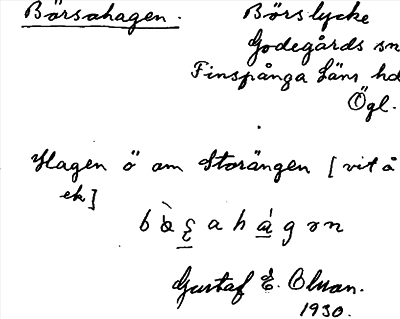 Börsahagen. Börslycke
Godegårds sn
Finspånga Läns hd
Ögl.
Hagen ö om Storängen [vit å
ek]
Gustaf E. Olson.
1930.